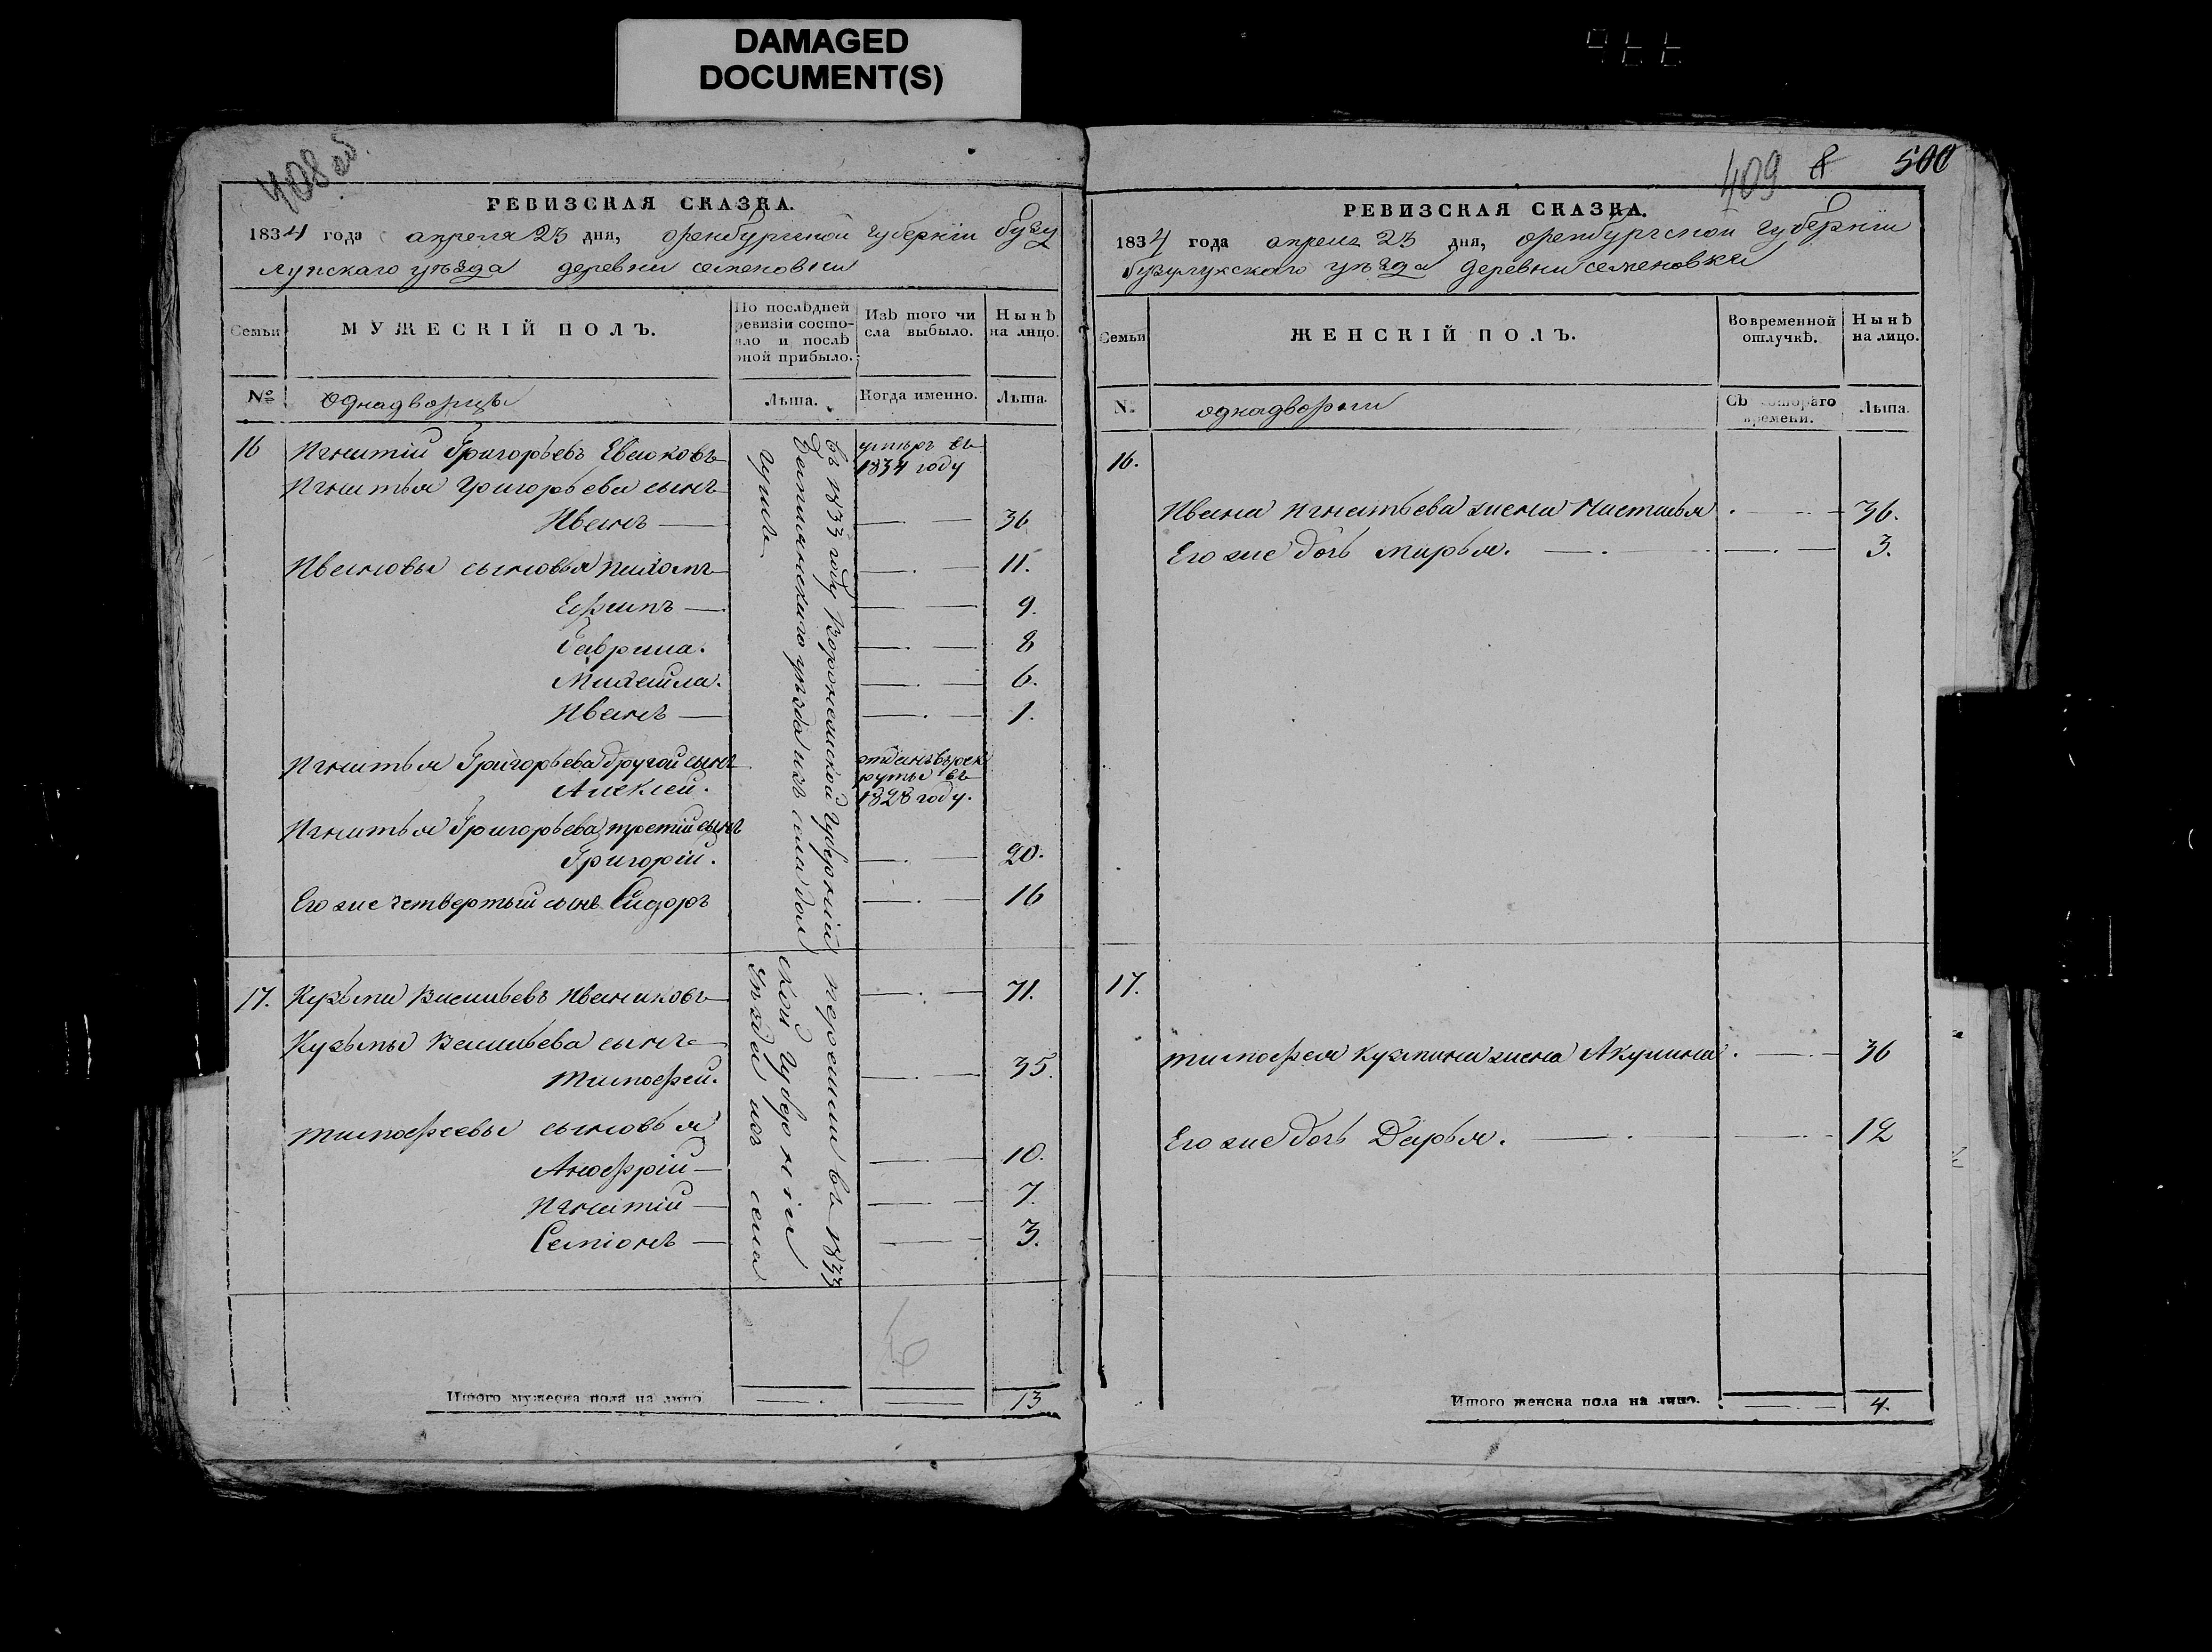 DAMAGED
DOCUMENT(S)
408 об.
РЕВИЗСКАЯ СКАЗКА.
1834 года апреля 23 дня, оренбургской губернїи бузу
лукскаго уѣзда деревни семеновки
Семьи
МУЖЕСКІЙ ПОЛЪ.
По послѣдней
ревизіи состо-
яло и послѣ
оной прибыло.
Изъ того чи
сла выбыло.
Нынѣ
на лицо.
№
однадворцы
Лѣта.
Когда именно.
Лѣта.
16 Игнатій Григорьевъ Евсюковъ
умьръ въ
1834 году
Игнатья Григорьева сынъ
Иванъ — 36
Ивановы сыновья Пахомъ 11.
Ефимъ — 9.
Гаврила. 8
Михайла. 6.
Иванъ — 1.
Игнатья Григорьева другой сынъ
Алексей.
отданъ в рек
руты въ
1828 году.
Игнатья Григорьева третій сынъ
Григорій. 20.
Его же четвертый сынъ Сидоръ 16
въ 1833 году Воронежской губерніи
уѣзда изъ села
17. Кузьма Васильевъ Иваниковъ 71.
Кузьмы Васильева сынъ
Тимофей. 35.
Тимофеевы сыновья
Анофрій — 10.
Игнатій — 7.
Семіонъ — 3.
въ 1833
ской губерніи
уѣзда изъ села
Итого мужеска пола на лицо 13
409 500
РЕВИЗСКАЯ СКАЗКА.
1834 года апреля 23 дня, оренбургской губернїи
бузулукскаго уѣзда деревни семеновки
Семьи
ЖЕНСКІЙ ПОЛЪ.
Во временной
отлучкѣ.
Нынѣ
на лицо.
№
однодворки
Съ котораго
времени.
Лѣта.
16.
Ивана Игнатьева жена Настасья 36.
Его же дочь марья. 3.
17.
тимофея кузмина жена Акулина 36
Его же дочь Дарья. 12
Итого женска пола на лицо. 4.